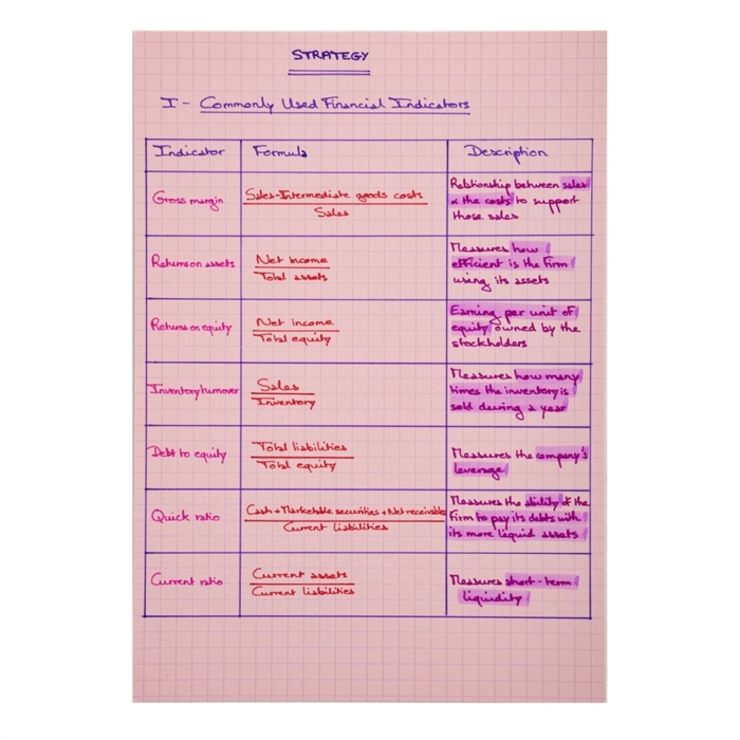 STRATEGY
I - Commonly Used Financial Indicators
Indicator Formula Description
Gross margin
Sales-Intermediate goods costs
Sales
Relationship between sales
& the costs to support
those sales
Returns on assets
Net income
Total assets
Measures how
efficient is the firm
using its assets
Returns on equity
Net income
Total equity
Earning per unit of
equity owned by the
stockholders
Inventory turnover
Sales
Inventory
Measures how many
times the inventory is
sold during a year
Debt to equity
Total liabilities
Total equity
Measures the company's
leverage
Quick ratio
Cash + Marketable securities + Net receivable
Current liabilities
Measures the ability of the
Firm to pay its debts with
its more liquid assets
Current ratio
Current assets
Current liabilities
Measures short-term
liquidity